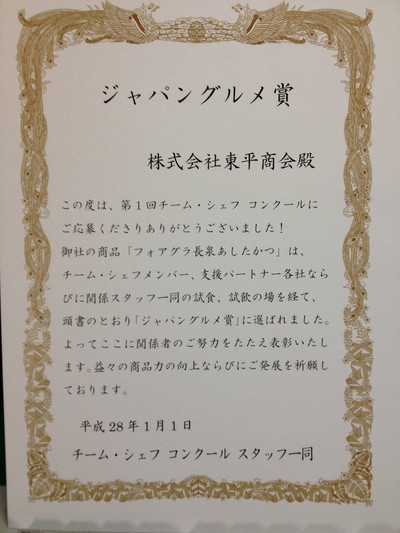 ジャパングルメ賞
株式会社東平商会殿
この度は、第1回チーム・シェフ コンクールに
ご応募くださりありがとうございました！
御社の商品「フォアグラ長泉あしたかつ」は、
チーム・シェフメンバー、支援パートナー各社なら
びに関係スタッフ一同の試食、試飲の場を経て、
頭書のとおり「ジャパングルメ賞」に選ばれました。
よってここに関係者のご努力をたたえ表彰いたし
ます。益々の商品力の向上ならびにご発展を祈願し
ております。
平成28年1月1日
チーム・シェフ コンクール スタッフ一同